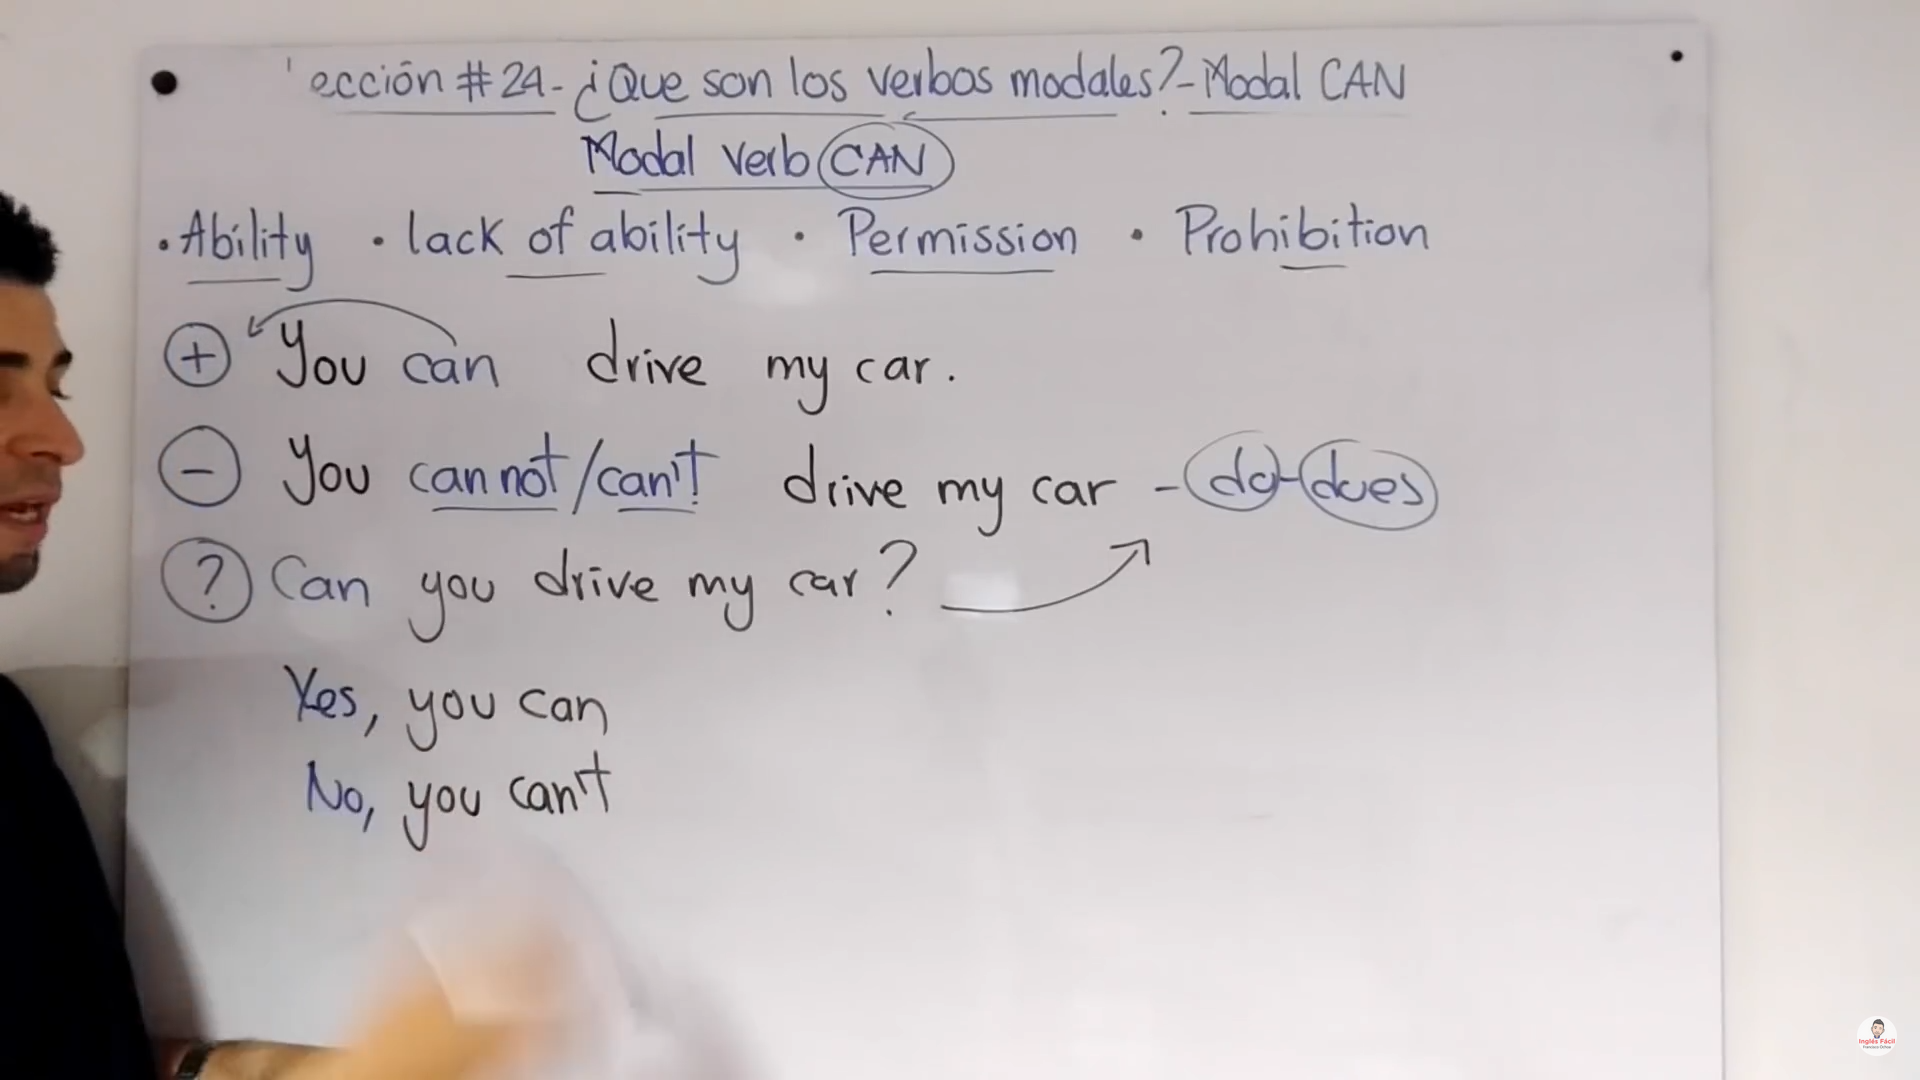 ección #24-¿Que son los verbos modales?-Modal CAN
Modal Verb CAN
·Ability · lack of ability · Permission · Prohibition
+ You can drive my car.
- You cannot/can't drive my car - do-does
? Can you drive my car?
Yes, you can
No, you can't
Inglés Fácil